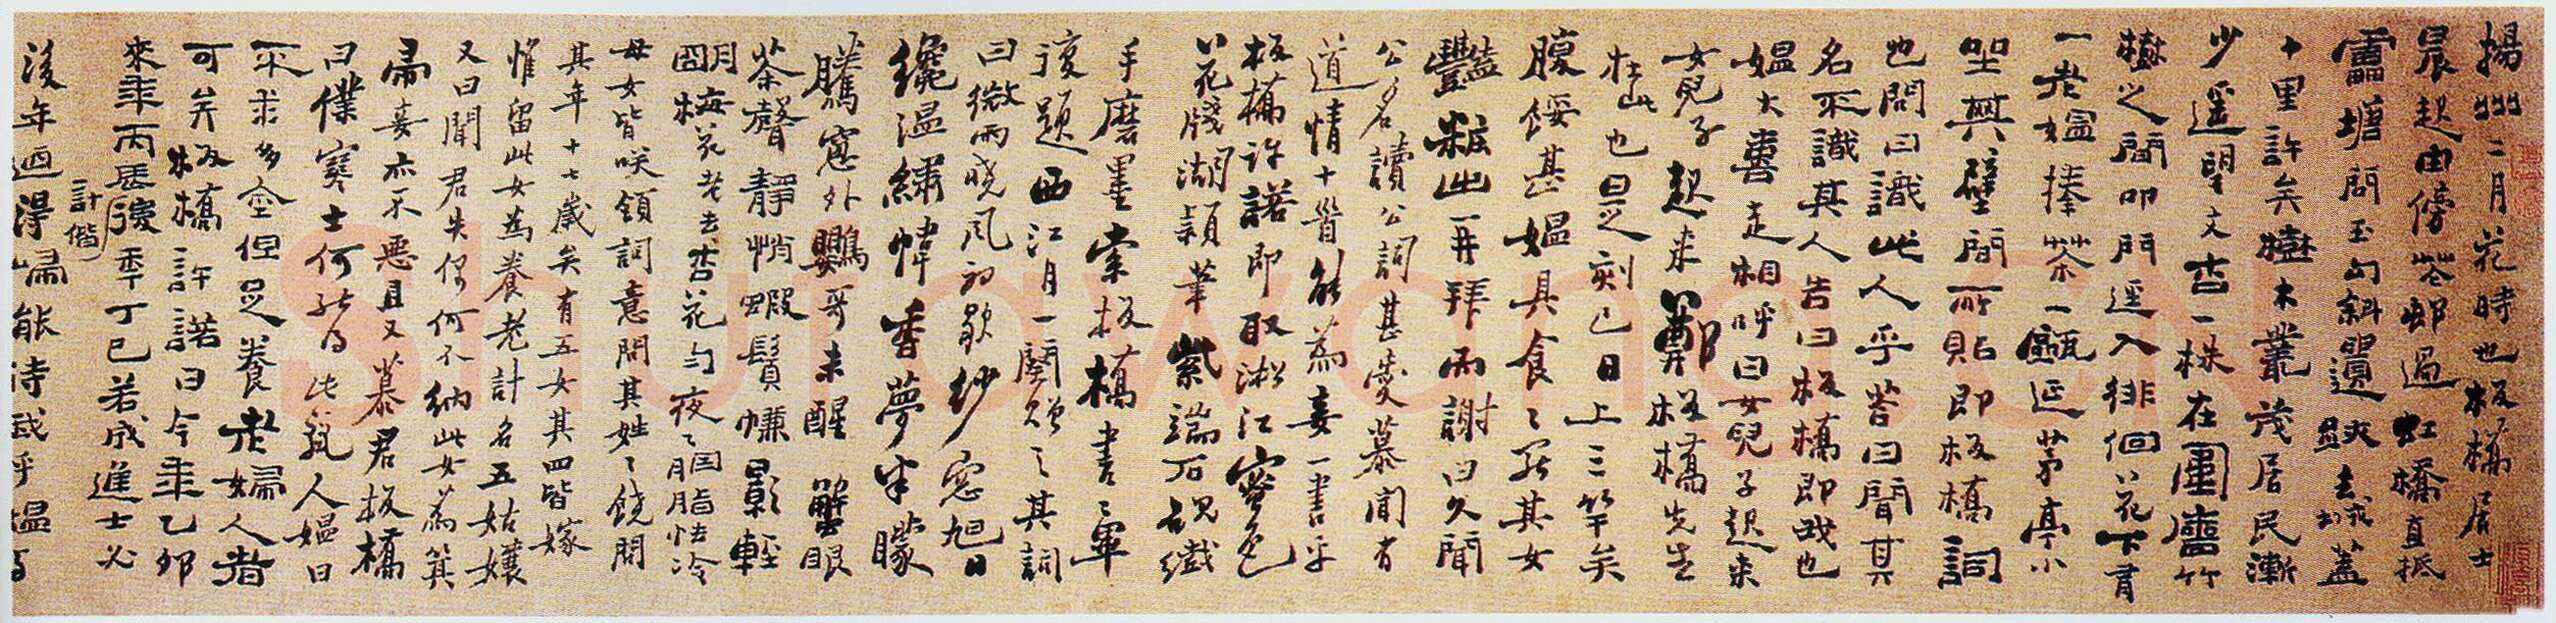 揚州二月花時也板橋居士
晨起由傍花邨過虹橋直抵
雷塘問玉勾斜遺跡去城蓋
十里許矣樹木叢茂居民漸
少遥望文杏一株在圍牆竹
樹之間叩門逕入徘徊花下有
一老媼捧茶一甌延茅亭小
坐其壁間所貼即板橋詞
也問曰識此人乎荅曰聞其
名不識其人告曰板橋即我也
媼大喜走相呼曰女兒子起来
女兒子起来鄭板橋先生
在此也是刻已日上三竿矣
腹餒甚媼具食食罷其女
豔粧出再拜而謝曰久聞
公名讀公詞甚愛慕聞有
道情十首能為妾一書乎
板橋許諾即取淞江蜜色
花牋湖穎筆紫端石硯纖
手磨墨索板橋書書畢
復題西江月一闋贈之其詞
曰微雨曉風初歇紗窓旭日
纔温繡幃香夢半朦
騰窓外鸚哥未醒 蟹眼
茶聲靜悄蝦鬚簾影輕
明梅花老去杏花勻夜夜胭脂怯冷
母女皆咲領詞意問其姓姓饒問
其年十七歲矣有五女其四皆嫁
惟留此女為養老計名五姑孃
又曰聞君失偶何不納此女為箕
帚妾亦不惡且又慕君板橋
曰僕寒士何能得此麗人媼曰
不求多金但足養老婦人者
可矣板橋許諾曰今年乙卯
來年丙辰計偕後年丁巳若成進士必
後年迺得歸能待我乎媼與